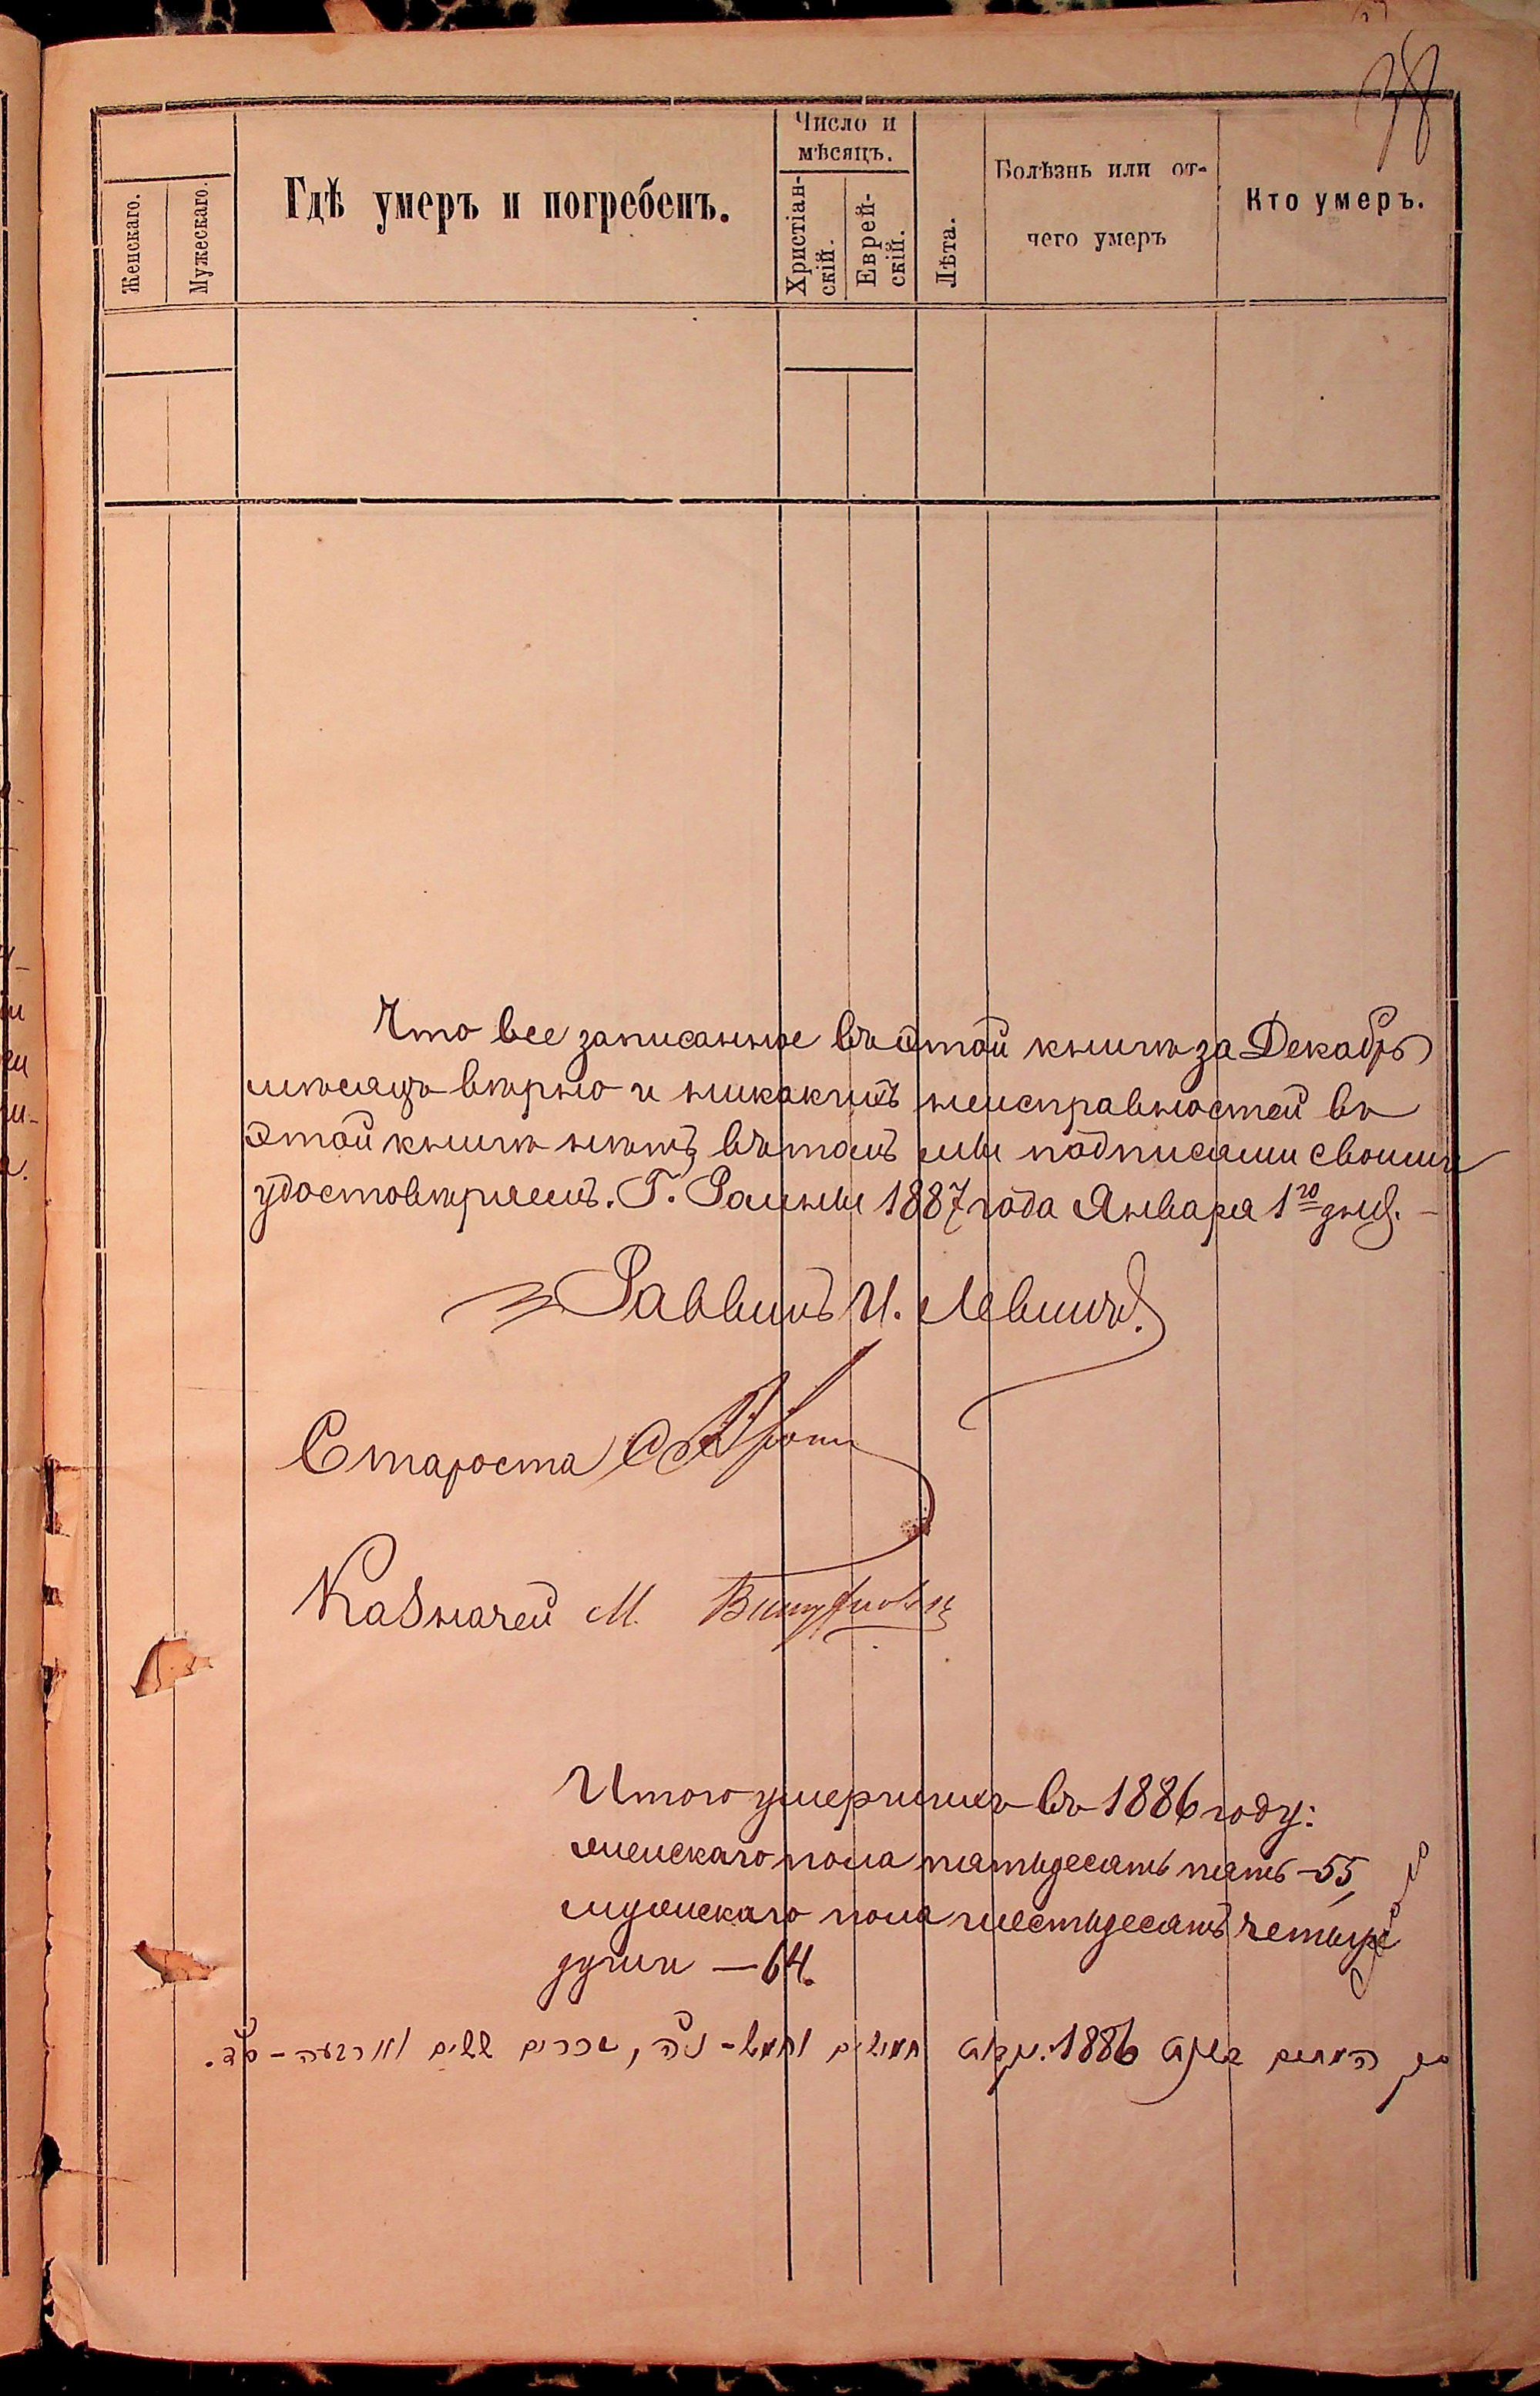 38
Женскаго.
Мужескаго.
Гдѣ умеръ и погребенъ.
Число и
мѣсяцъ.
Христіан-
скій.
Еврей-
скій.
Лѣта.
Болѣзнь или от-
чего умеръ
Кто умеръ.
Что все записанное въ этой книгѣ за Декабрь
мѣсяцъ вѣрно и никакихъ неисправностей въ
этой книгѣ нѣтъ, въ томъ мы подписями своими
удостовѣряемъ. Г. Ромны 1887 года Января 1го дня. –
Раввинъ И. Левинъ.
Староста
Казначей М.
Итого умершихъ въ 1886 году:
женскаго пола пятьдесятъ пять – 55,
мужескаго пола шестьдесятъ четыре
души – 64.
המתים בשנת 1886. נקבות חמשים וחמש - נ״ה, זכרים ששים וארבעה - ס״ד.